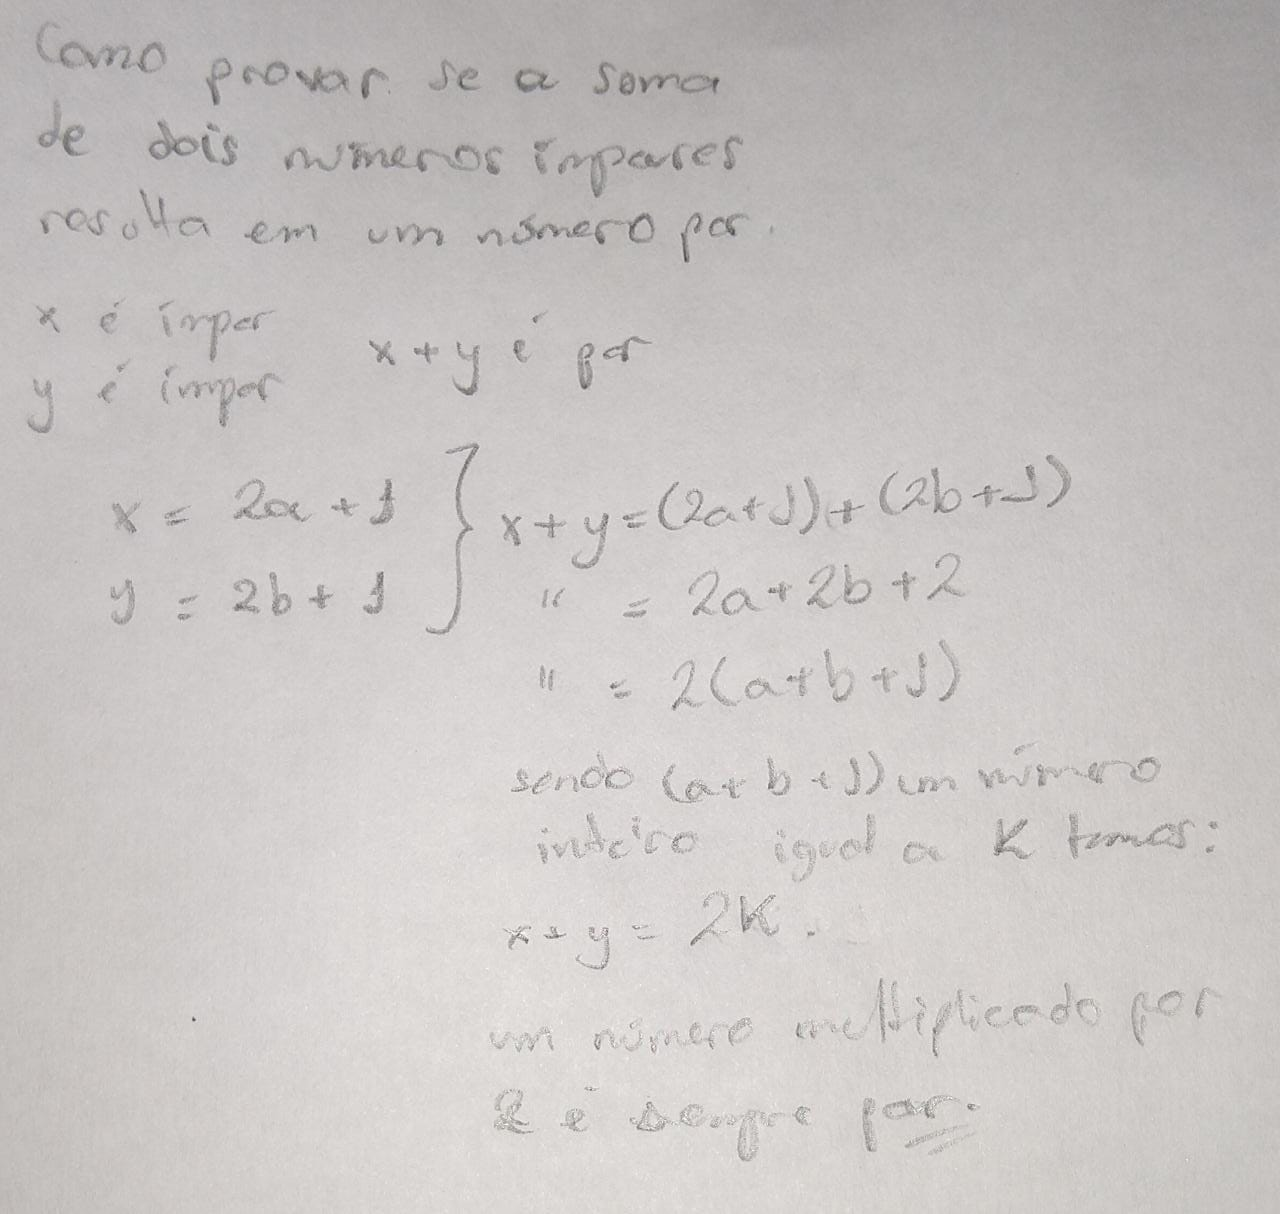 Como provar se a soma
de dois números ímpares
resulta em um número par.
x é ímpar
y é ímpar
x+y é par
x = 2a + 1
y = 2b + 1
} x+y=(2a+1)+(2b+1)
" = 2a+2b+2
" = 2(a+b+1)
sendo (a+b+1) um número
inteiro igual a K temos:
x+y = 2K.
um número multiplicado por
2 é sempre par.